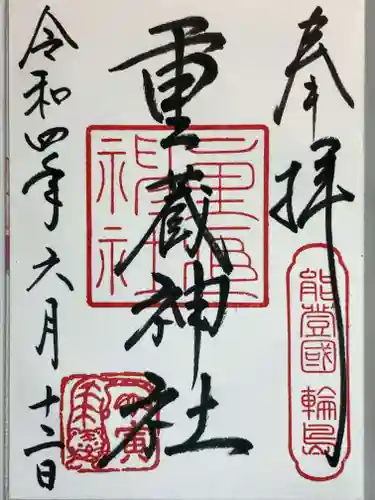 奉拝
能登國輪島
重蔵神社
令和四年六月十二日